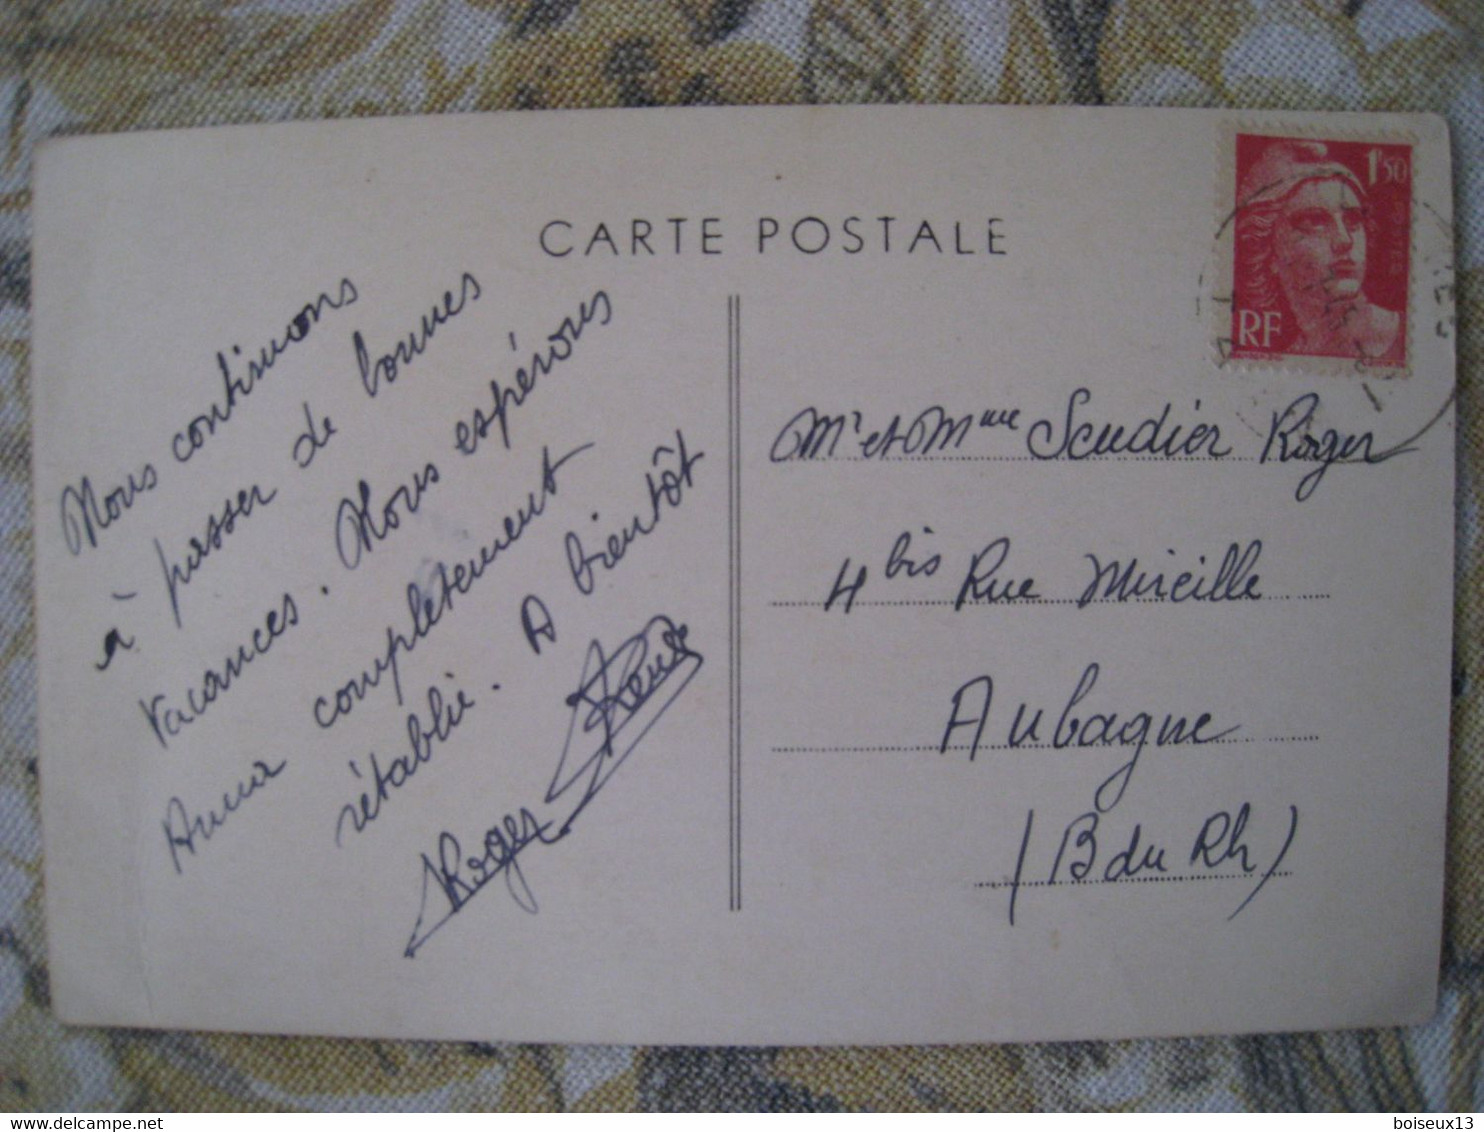 CARTE POSTALE
Nous continuons
à passer de bonnes
vacances. Nous espérons
Anna complètement
rétablie. A bientôt
Roger
1f50
RF
Mr et Mme Scudier Roger
4 bis Rue Mireille
Aubagne
(B du Rh)
boiseux13